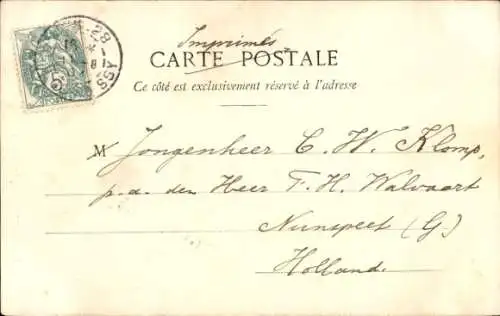 Imprimés
CARTE POSTALE
Ce côté est exclusivement réservé à l'adresse
M Jongenheer C. W. Klomp,
p.a. den Heer F. H. Walvaart
Nunspeet (G.)
Holland.